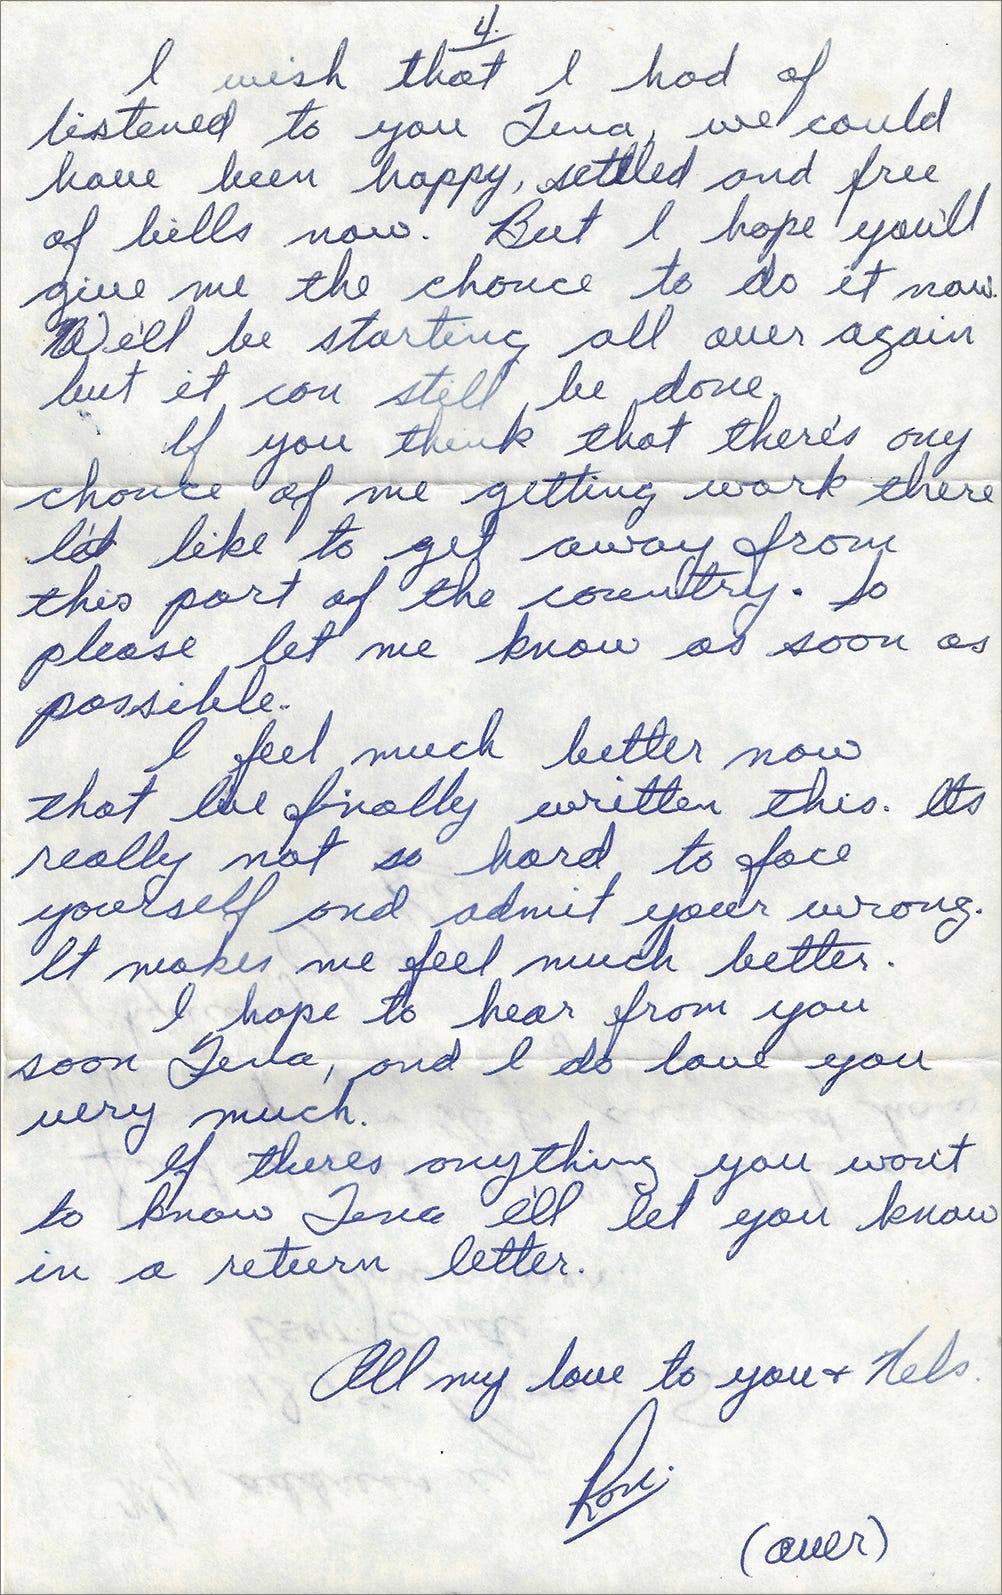 4.
I wish that I had of
listened to you Tena, we could
have been happy, settled and free
of bills now. But I hope you'll
give me the chance to do it now.
We'll be starting all over again
but it can still be done.
If you think that there's any
chance of me getting work there
I'd like to get away from
this part of the country. So
please let me know as soon as
possible.
I feel much better now
that I've finally written this. Its
really not so hard to face
yourself and admit your wrong.
It makes me feel much better.
I hope to hear from you
soon Tena, and I do love you
very much.
If theres anything you want
to know Tena i'll let you know
in a return letter.
All my love to you + Kels.
Ron.
(over)